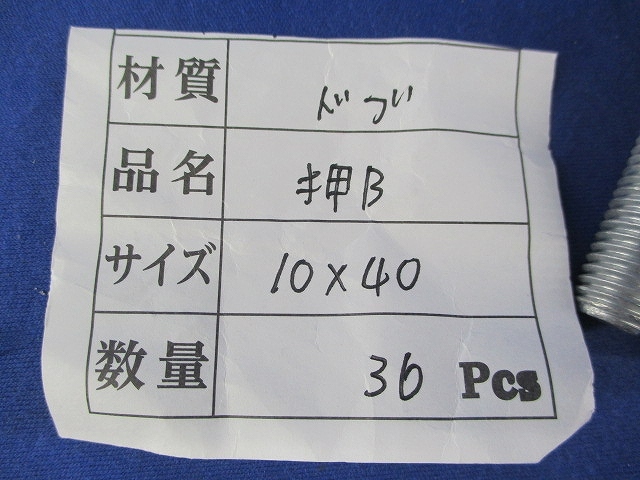 材質
品名 押B
サイズ 10×40
数量 36 Pcs